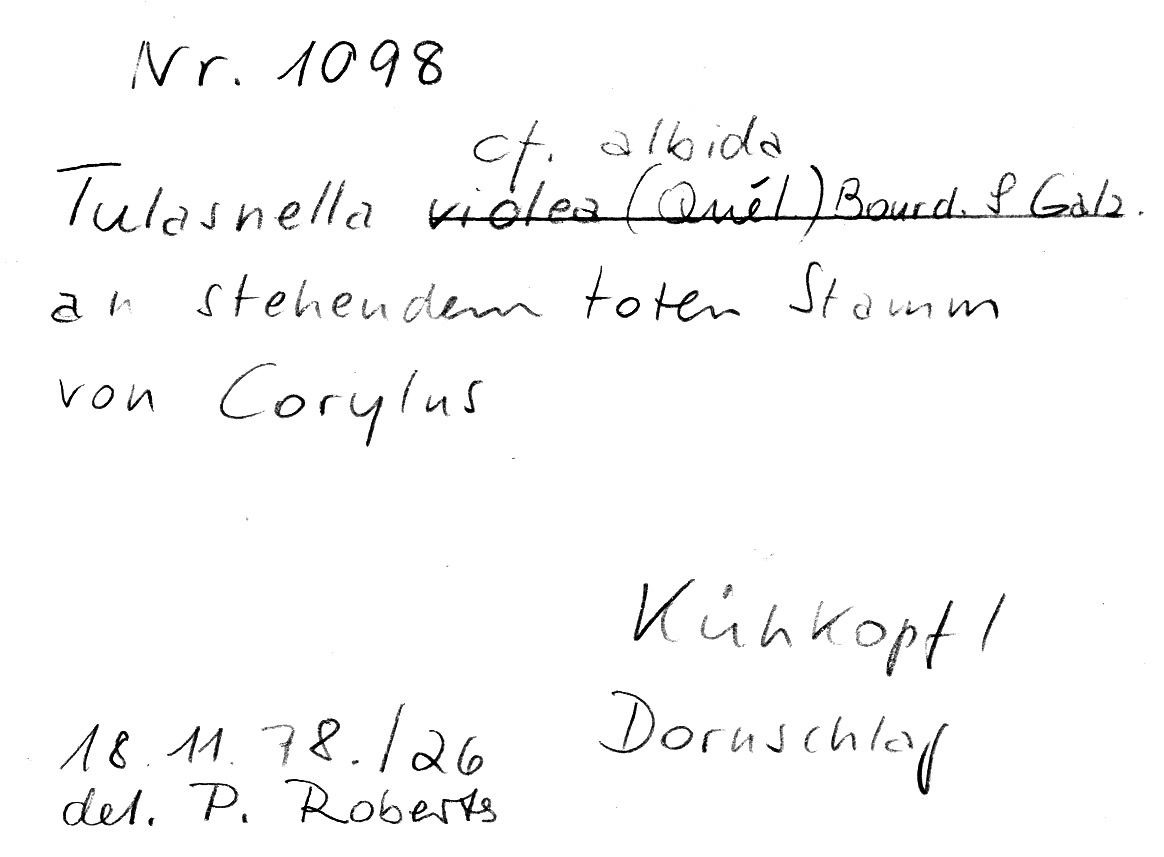 Nr. 1098
cf. albida
Tulasnella violea (Quél) Bourd. & Galz.
an stehendem toten Stamm
von Corylus
Kühkopf /
Dornschlag
18. 11. 78. /26
det. P. Roberts